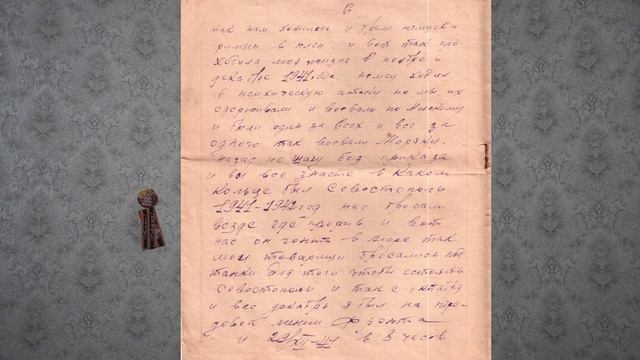 6
так нам хотелось и брали немцев и
румын в плен. и вот так про
ходила моя жизнь в ноябре и
декабре 1941 года. немец ходил
в психическую атаку но мы их
сдерживали и воевали по Морскому
и были один за всех и все за
одного так воевали Моряки.
назад не шагу без приказа
и вы все знаете в каком
кольце был Севостополь
1941-1942 год нас бросали
везде где прорыв и вот
нас он гонить в море так
мои товарищи бросались под
танки для того чтобы отстоять
Севостополь и так с октября
и весь декабрь я был на пре
довой линии Фронта
и 29/XII-41 в 8 часов